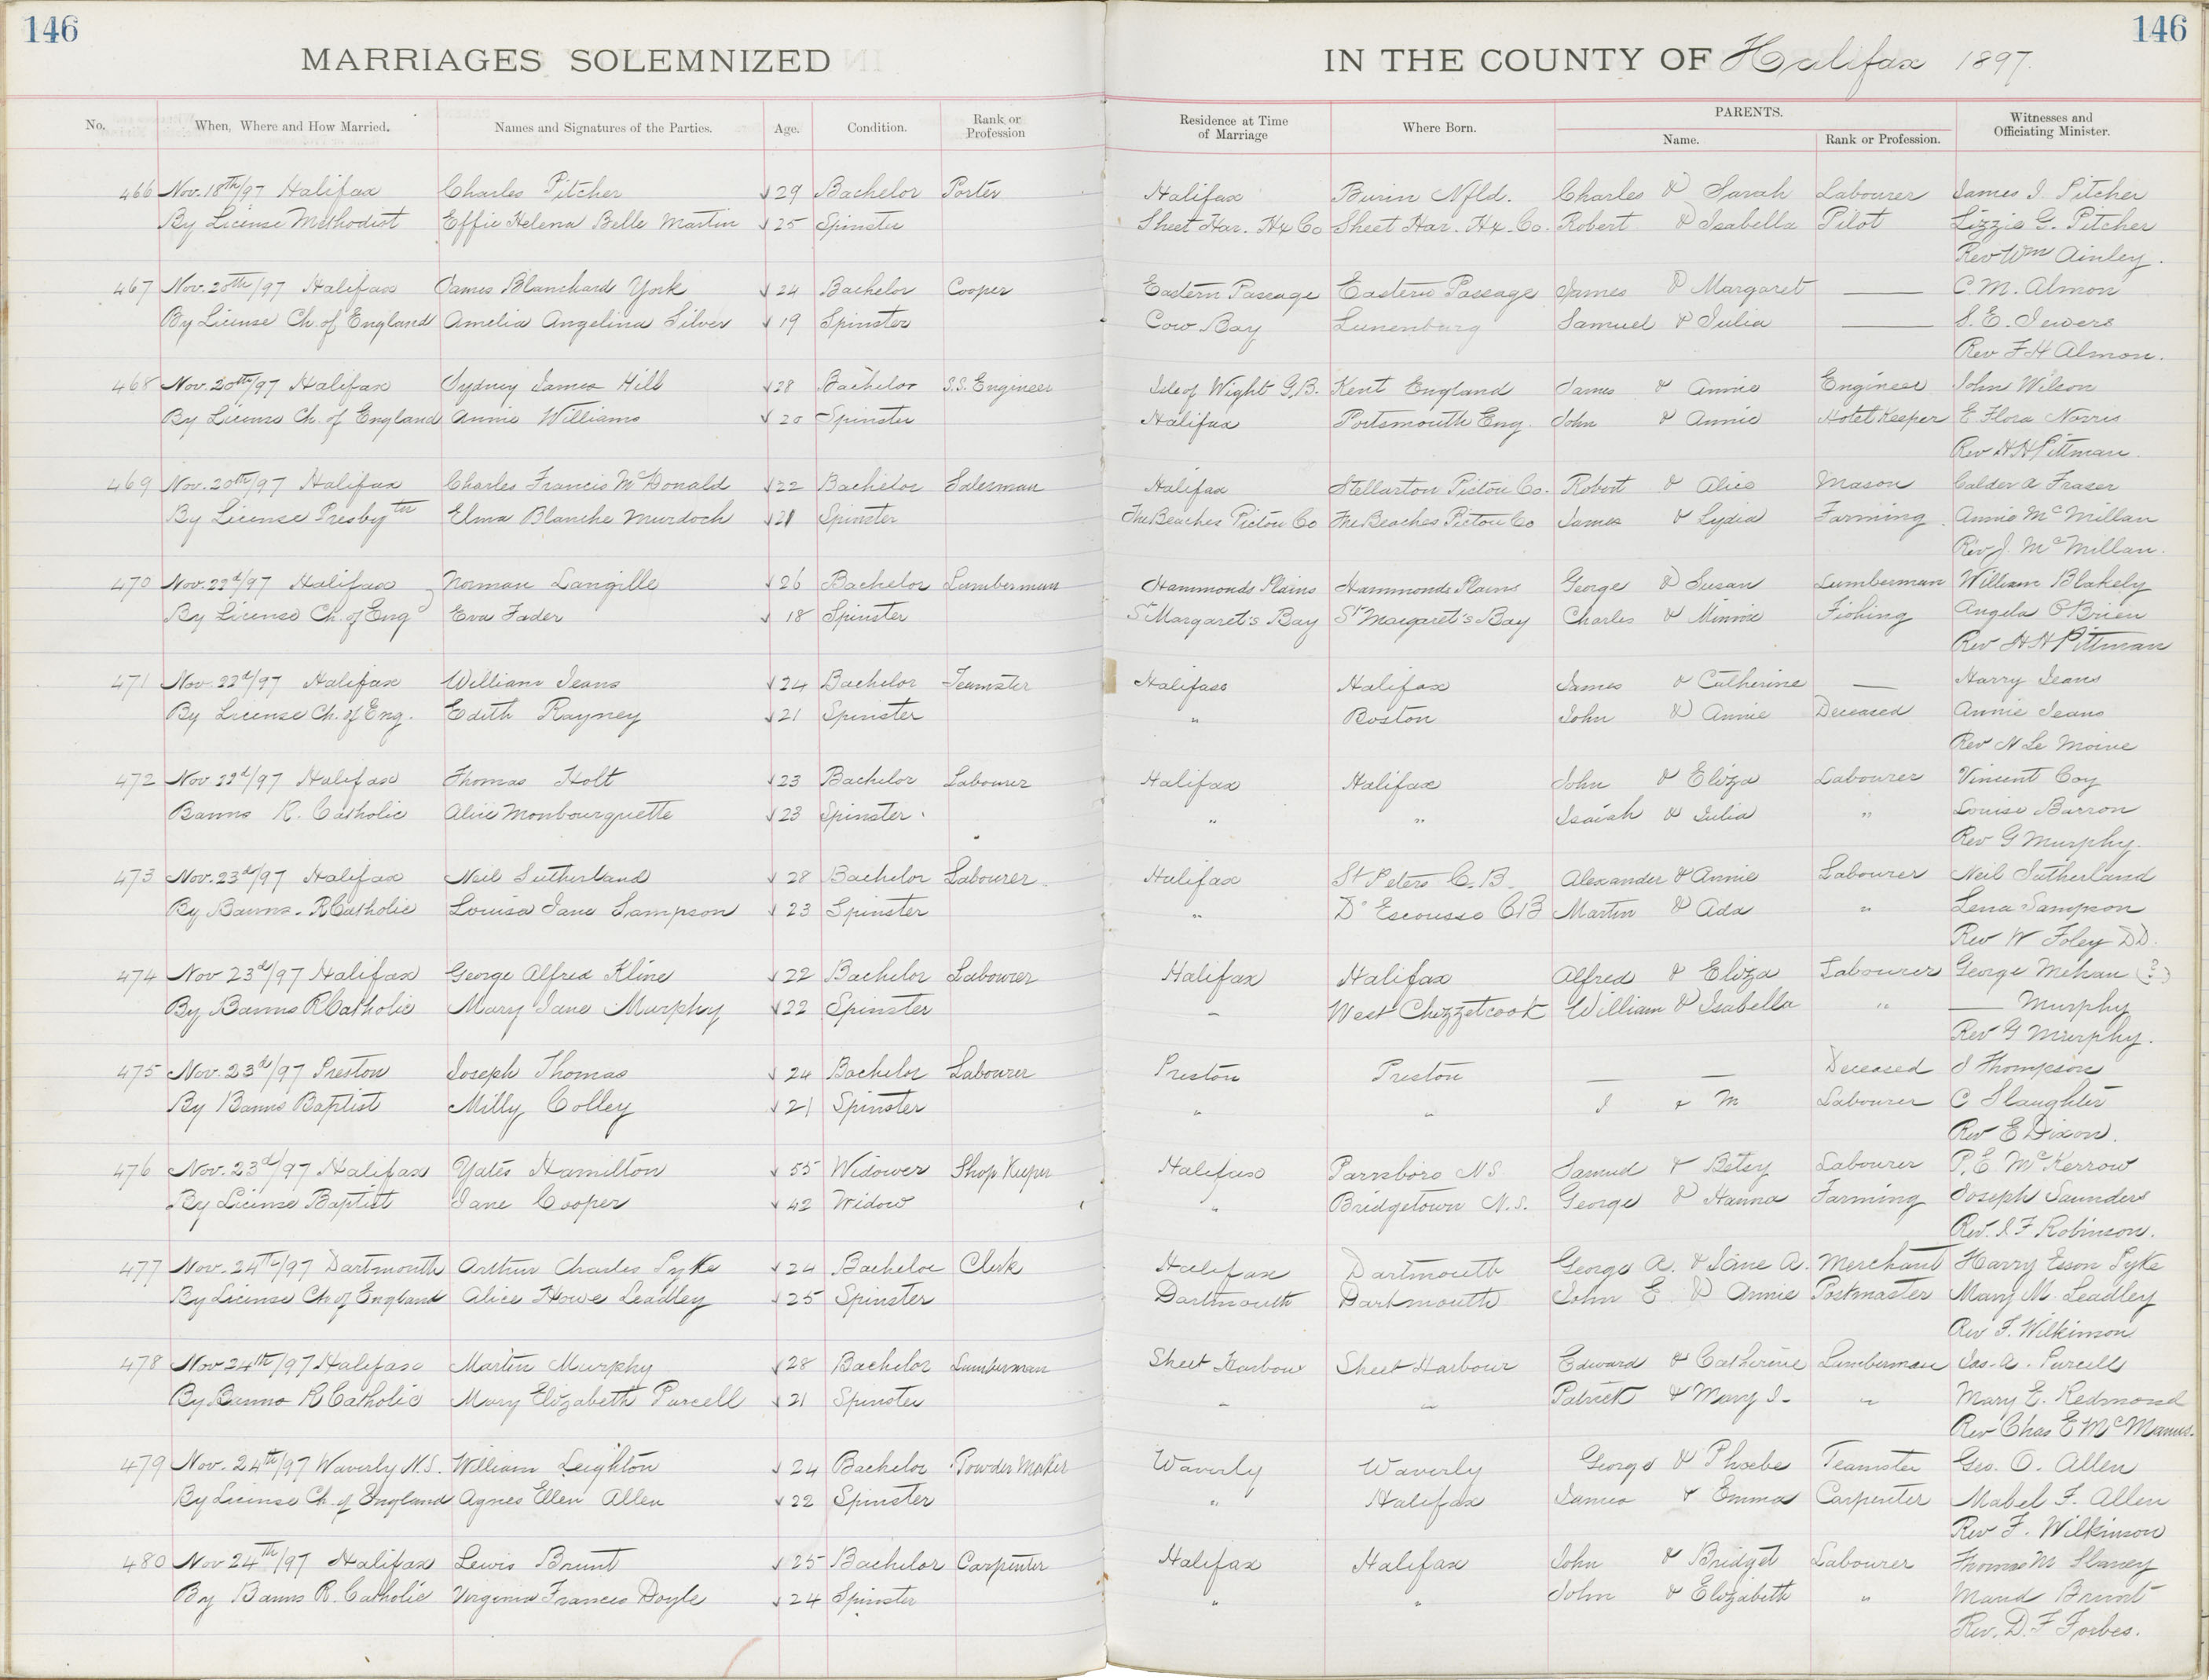 146
146
MARRIAGES SOLEMNIZED
IN THE COUNTY OF Halifax 1897.
No. When, Where and How Married. Names and Signatures of the Parties. Age. Condition. Rank or Profession Residence at Time of Marriage Where Born. PARENTS. Name. Rank or Profession. Witnesses and Officiating Minister.
466 Nov. 18th/97 Halifax Charles Pitcher 29 Bachelor Porter Halifax Burin Nfld. Charles & Sarah Labourer James J. Pitcher
By License Methodist Effie Helena Belle Martin 25 Spinster Sheet Har. Hx Co Sheet Har. Hx. Co. Robert & Isabella Pilot Lizzie G. Pitcher
Rev Wm Ainley.
467 Nov. 20th/97 Halifax James Blanchard York 24 Bachelor Cooper Eastern Passage Eastern Passage James & Margaret — C. M. Almon
By License Ch. of England Amelia Angelina Silver 19 Spinster Cow Bay Lunenburg Samuel & Julia — S. E. Jewers
Rev F H Almon.
468 Nov. 20th/97 Halifax Sydney James Hill 28 Bachelor S.S. Engineer Isle of Wight G.B. Kent England James & Annie Engineer John Wilson
By License Ch. of England Annie Williams 20 Spinster Halifax Portsmouth Eng. John & Annie Hotel Keeper E Flora Norris
Rev H H Pittman.
469 Nov. 20th/97 Halifax Charles Francis McDonald 22 Bachelor Salesman Halifax Stellarton Pictou Co. Robert & Alice Mason Calder A Fraser
By License Presbyter Elma Blanche Murdoch 21 Spinster The Beaches Pictou Co The Beaches Pictou Co James & Lydia Farming Annie McMillan
Rev J. McMillan.
470 Nov. 22d/97 Halifax Norman Langille 26 Bachelor Lumberman Hammonds Plains Hammonds Plains George & Susan Lumberman William Blakely
By License Ch. of Eng Eva Fader 18 Spinster St Margaret's Bay St Margaret's Bay Charles & Minnie Fishing Angela O'Brien
Rev H H Pittman
471 Nov. 22d/97 Halifax William Jeans 24 Bachelor Teamster Halifax Halifax James & Catherine — Harry Jeans
By License Ch. of Eng. Edith Rayney 21 Spinster " Boston John & Annie Deceased Annie Jeans
Rev N Le Moine
472 Nov 22d/97 Halifax Thomas Holt 23 Bachelor Labourer Halifax Halifax John & Eliza Labourer Vincent Coy
Banns R. Catholic Alice Monbourquette 23 Spinster " " Isaiah & Julia " Louise Barron
Rev G Murphy.
473 Nov. 23d/97 Halifax Neil Sutherland 28 Bachelor Labourer Halifax St Peters C.B. Alexander & Annie Labourer Neil Sutherland
By Banns. R Catholic Louisa Jane Sampson 23 Spinster " D'Escousse CB Martin & Ada " Lena Sampson
Rev W Foley D.D.
474 Nov 23d/97 Halifax George Alfred Kline 22 Bachelor Labourer Halifax Halifax Alfred & Eliza Labourer George Mehan (?)
By Banns R Catholic Mary Jane Murphy 22 Spinster " West Chezzetcook William & Isabella " — Murphy
Rev G Murphy.
475 Nov. 23d/97 Preston Joseph Thomas 24 Bachelor Labourer Preston Preston — — Deceased J Thompson
By Banns Baptist Milly Colley 21 Spinster " " J & M Labourer C Slaughter
Rev E Dixon.
476 Nov. 23d/97 Halifax Yates Hamilton 55 Widower Shop Keeper Halifax Parrsboro NS Samuel & Betsy Labourer P. E McKerrow
By License Baptist Jane Cooper 42 Widow " Bridgetown N.S. George & Hanna Farming Joseph Saunders
Rev. J F Robinson.
477 Nov. 24th/97 Dartmouth Arthur Charles Pyke 24 Bachelor Clerk Halifax Dartmouth George A. & Jane A. Merchant Harry Esson Pyke
By License Ch of England Alice Howe Leadley 25 Spinster Dartmouth Dartmouth John E & Annie Postmaster Mary M. Leadley
Rev F. Wilkinson
478 Nov 24th/97 Halifax Martin Murphy 28 Bachelor Lumberman Sheet Harbour Sheet Harbour Edward & Catherine Lumberman Jas. A. Purcell
By Banns R Catholic Mary Elizabeth Purcell 21 Spinster " " Patrick & Mary J. " Mary E. Redmond
Rev Chas E McManus.
479 Nov. 24th/97 Waverly N.S. William Leighton 24 Bachelor Powder Maker Waverly Waverly George & Phoebe Teamster Geo. O. Allen
By License Ch. of England Agnes Ellen Allen 22 Spinster " Halifax James & Emma Carpenter Mabel F. Allen
Rev F. Wilkinson
480 Nov 24th/97 Halifax Lewis Brunt 25 Bachelor Carpenter Halifax Halifax John & Bridget Labourer Thomas M Slaney
By Banns R. Catholic Virginia Frances Doyle 24 Spinster " " John & Elizabeth " Maud Brunt
Rev. D. F Forbes.